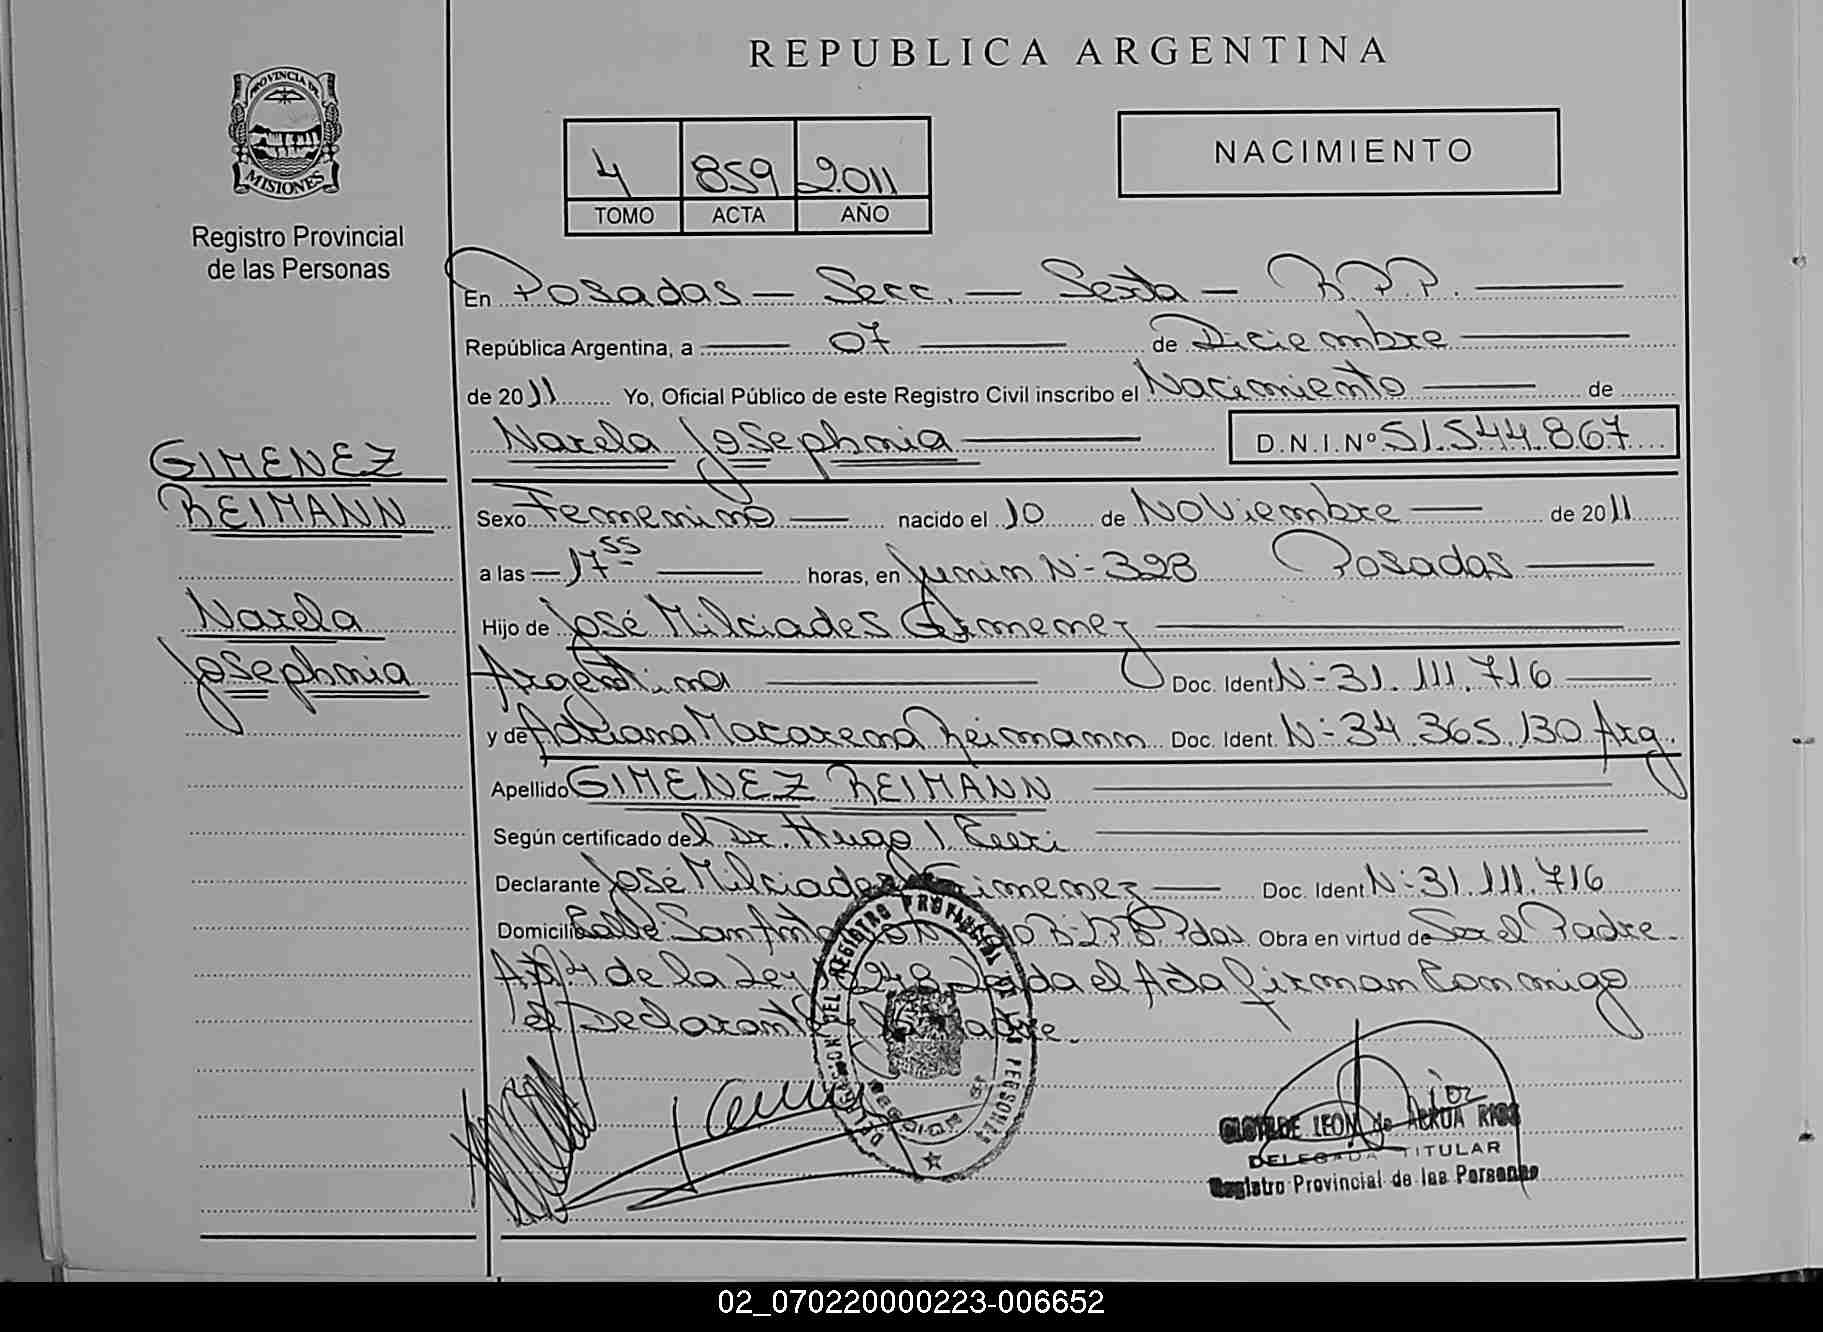 REPUBLICA ARGENTINA
PROVINCIA DE
MISIONES
Registro Provincial
de las Personas
4 859 2.011
TOMO ACTA AÑO
NACIMIENTO
En Posadas - Secc. - Sexta - R.P.P.
República Argentina, a 07 de Diciembre
de 2011 Yo, Oficial Público de este Registro Civil inscribo el Nacimiento de
Narela Josephnia D.N.I.Nº 51.544.867
GIMENEZ
REIMANN
Narela
Josephnia
Sexo Femenino nacido el 10 de Noviembre de 2011
a las 17 55 horas, en Junin Nº 398 Posadas
Hijo de José Milciades Gimenez
Argentina Doc. Ident Nº 31.111.716
y de Adriana Macarena Reimann Doc. Ident. Nº 34.365.130 Arg.
Apellido GIMENEZ REIMANN
Según certificado del Dr. Hugo
Declarante José Milciades Gimenez Doc. Ident Nº 31.111.716
Domicilio Calle San Pdas. Obra en virtud de Ser el Padre
de la Ley el Acta firman Conmigo
el Declarante Madre.
DELEGACION DEL REGISTRO PROVINCIAL DE LAS PERSONAS
CLOTILDE LEON de ACKUA RIOS
DELEGADA TITULAR
Registro Provincial de las Personas
02_070220000223-006652